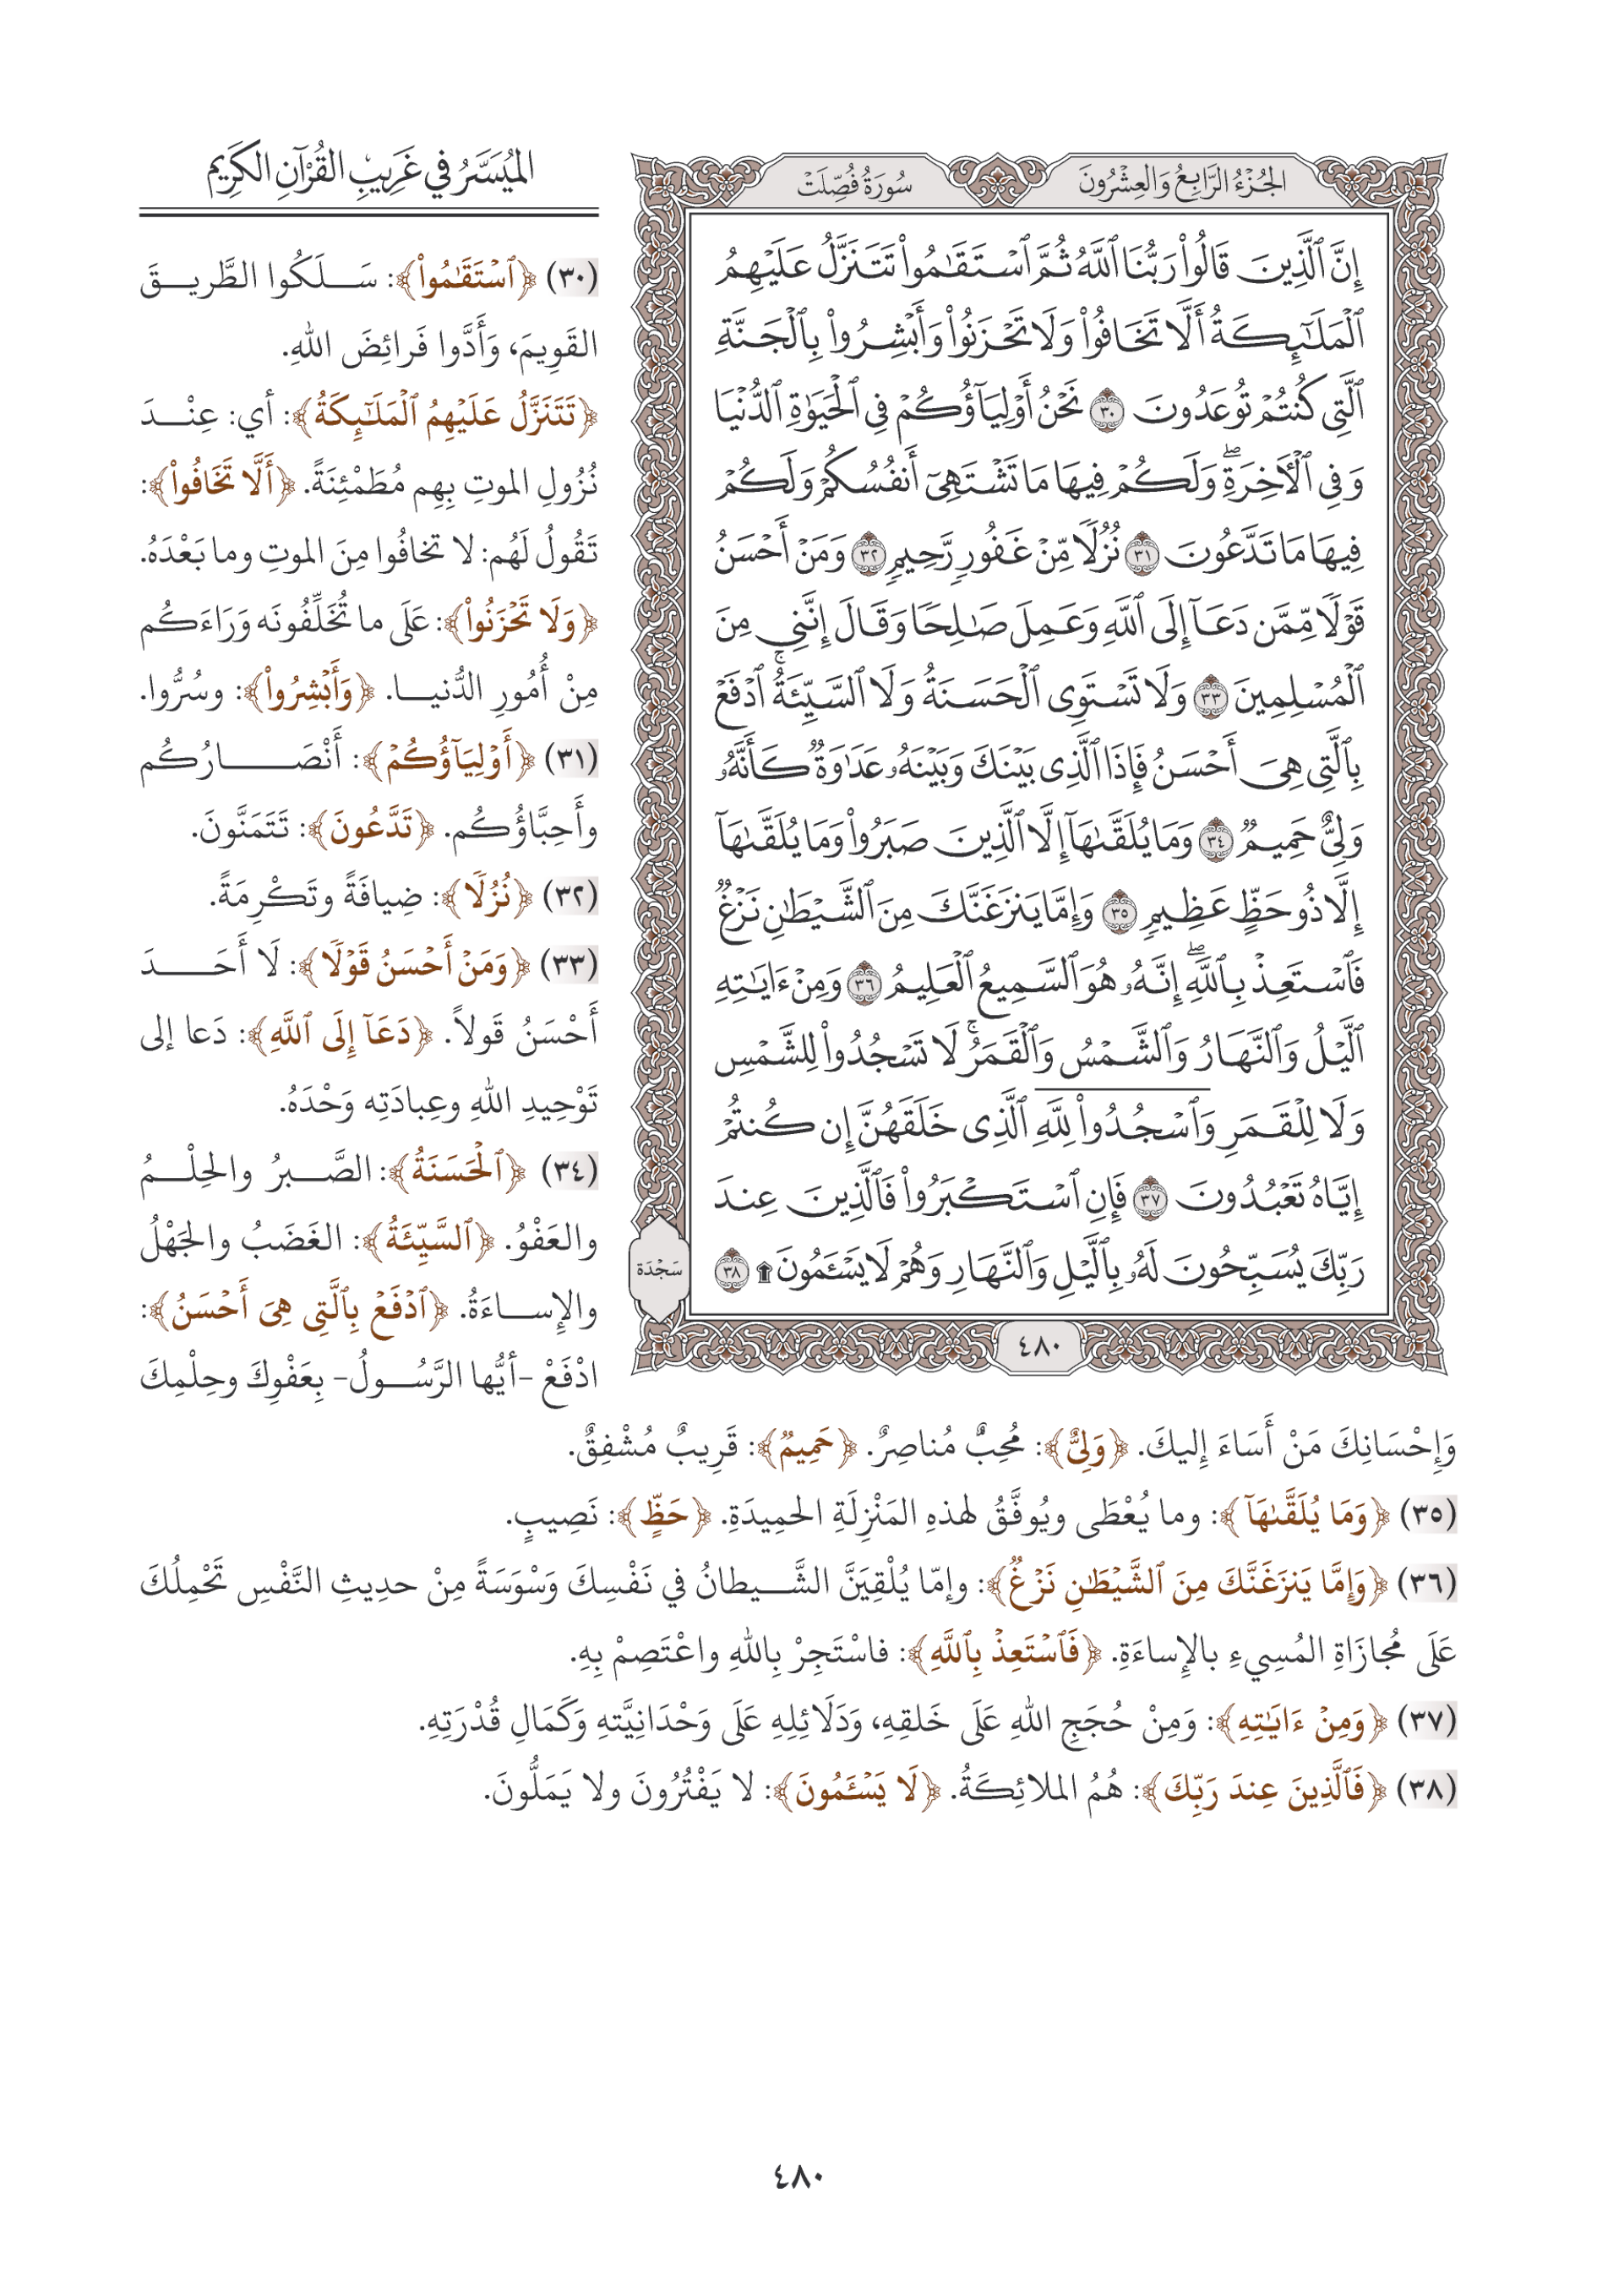 الجُزْءُ الرَّابِعُ وَالعِشْرُونَ
سُورَةُ فُصِّلَتْ
إِنَّ ٱلَّذِينَ قَالُواْ رَبُّنَا ٱللَّهُ ثُمَّ ٱسْتَقَٰمُواْ تَتَنَزَّلُ عَلَيْهِمُ
ٱلْمَلَٰٓئِكَةُ أَلَّا تَخَافُواْ وَلَا تَحْزَنُواْ وَأَبْشِرُواْ بِٱلْجَنَّةِ
ٱلَّتِي كُنتُمْ تُوعَدُونَ ٣٠ نَحْنُ أَوْلِيَآؤُكُمْ فِي ٱلْحَيَوٰةِ ٱلدُّنْيَا
وَفِي ٱلْأَخِرَةِۖ وَلَكُمْ فِيهَا مَا تَشْتَهِيٓ أَنفُسُكُمْ وَلَكُمْ
فِيهَا مَا تَدَّعُونَ ٣١ نُزُلًا مِّنْ غَفُورٍ رَّحِيمٍ ٣٢ وَمَنْ أَحْسَنُ
قَوْلًا مِّمَّن دَعَآ إِلَى ٱللَّهِ وَعَمِلَ صَٰلِحًا وَقَالَ إِنَّنِي مِنَ
ٱلْمُسْلِمِينَ ٣٣ وَلَا تَسْتَوِي ٱلْحَسَنَةُ وَلَا ٱلسَّيِّئَةُۚ ٱدْفَعْ
بِٱلَّتِي هِيَ أَحْسَنُ فَإِذَا ٱلَّذِي بَيْنَكَ وَبَيْنَهُۥ عَدَٰوَةٌ كَأَنَّهُۥ
وَلِيٌّ حَمِيمٌ ٣٤ وَمَا يُلَقَّىٰهَآ إِلَّا ٱلَّذِينَ صَبَرُواْ وَمَا يُلَقَّىٰهَآ
إِلَّا ذُو حَظٍّ عَظِيمٍ ٣٥ وَإِمَّا يَنزَغَنَّكَ مِنَ ٱلشَّيْطَٰنِ نَزْغٌ
فَٱسْتَعِذْ بِٱللَّهِۖ إِنَّهُۥ هُوَ ٱلسَّمِيعُ ٱلْعَلِيمُ ٣٦ وَمِنْ ءَايَٰتِهِ
ٱلَّيْلُ وَٱلنَّهَارُ وَٱلشَّمْسُ وَٱلْقَمَرُۚ لَا تَسْجُدُواْ لِلشَّمْسِ
وَلَا لِلْقَمَرِ وَٱسْجُدُواْ لِلَّهِ ٱلَّذِي خَلَقَهُنَّ إِن كُنتُمْ
إِيَّاهُ تَعْبُدُونَ ٣٧ فَإِنِ ٱسْتَكْبَرُواْ فَٱلَّذِينَ عِندَ
رَبِّكَ يُسَبِّحُونَ لَهُۥ بِٱلَّيْلِ وَٱلنَّهَارِ وَهُمْ لَا يَسْـَٔمُونَ ۩ ٣٨
سَجْدَة
٤٨٠
المُيَسَّرُ في غَرِيبِ القُرْآنِ الكَرِيم
(٣٠) ﴿ٱسْتَقَٰمُواْ﴾: سَلَكُوا الطَّريقَ
القَوِيمَ، وَأَدَّوا فَرائِضَ اللهِ.
﴿تَتَنَزَّلُ عَلَيْهِمُ ٱلْمَلَٰٓئِكَةُ﴾: أي: عِنْدَ
نُزُولِ الموتِ بِهِم مُطَمْئِنَةً. ﴿أَلَّا تَخَافُواْ﴾:
تَقُولُ لَهُم: لا تخافُوا مِنَ الموتِ وما بَعْدَهُ.
﴿وَلَا تَحْزَنُواْ﴾: عَلَى ما تُخَلِّفُونَه وَرَاءَكُم
مِنْ أُمُورِ الدُّنيا. ﴿وَأَبْشِرُواْ﴾: وسُرُّوا.
(٣١) ﴿أَوْلِيَآؤُكُمْ﴾: أَنْصَارُكُم
وأَحِبَّاؤُكُم. ﴿تَدَّعُونَ﴾: تَتَمَنَّونَ.
(٣٢) ﴿نُزُلًا﴾: ضِيافَةً وتَكْرِمَةً.
(٣٣) ﴿وَمَنْ أَحْسَنُ قَوْلًا﴾: لَا أَحَدَ
أَحْسَنُ قَولاً. ﴿دَعَآ إِلَى ٱللَّهِ﴾: دَعا إلى
تَوْحِيدِ اللهِ وعِبادَتِه وَحْدَهُ.
(٣٤) ﴿ٱلْحَسَنَةُ﴾: الصَّبرُ والحِلْمُ
والعَفْوُ. ﴿ٱلسَّيِّئَةُ﴾: الغَضَبُ والجَهْلُ
والإِساءَةُ. ﴿ٱدْفَعْ بِٱلَّتِي هِيَ أَحْسَنُ﴾:
ادْفَعْ -أيُّها الرَّسُولُ- بِعَفْوِكَ وحِلْمِكَ
وَإِحْسَانِكَ مَنْ أَسَاءَ إِليكَ. ﴿وَلِيٌّ﴾: مُحِبٌّ مُناصِرٌ. ﴿حَمِيمٌ﴾: قَرِيبٌ مُشْفِقٌ.
(٣٥) ﴿وَمَا يُلَقَّىٰهَآ﴾: وما يُعْطَى ويُوفَّقُ لهذهِ المَنْزِلَةِ الحمِيدَةِ. ﴿حَظٍّ﴾: نَصِيبٍ.
(٣٦) ﴿وَإِمَّا يَنزَغَنَّكَ مِنَ ٱلشَّيْطَٰنِ نَزْغٌ﴾: وإمّا يُلْقِيَنَّ الشَّيطانُ في نَفْسِكَ وَسْوَسَةً مِنْ حديثِ النَّفْسِ تَحْمِلُكَ
عَلَى مُجازَاةِ المُسِيءِ بالإِساءَةِ. ﴿فَٱسْتَعِذْ بِٱللَّهِ﴾: فاسْتَجِرْ بِاللهِ واعْتَصِمْ بِهِ.
(٣٧) ﴿وَمِنْ ءَايَٰتِهِ﴾: وَمِنْ حُجَجِ اللهِ عَلَى خَلقِهِ، وَدَلَائِلِهِ عَلَى وَحْدَانِيَّتِهِ وَكَمَالِ قُدْرَتِهِ.
(٣٨) ﴿فَٱلَّذِينَ عِندَ رَبِّكَ﴾: هُمُ الملائِكَةُ. ﴿لَا يَسْـَٔمُونَ﴾: لا يَفْتُرُونَ ولا يَمَلُّونَ.
٤٨٠